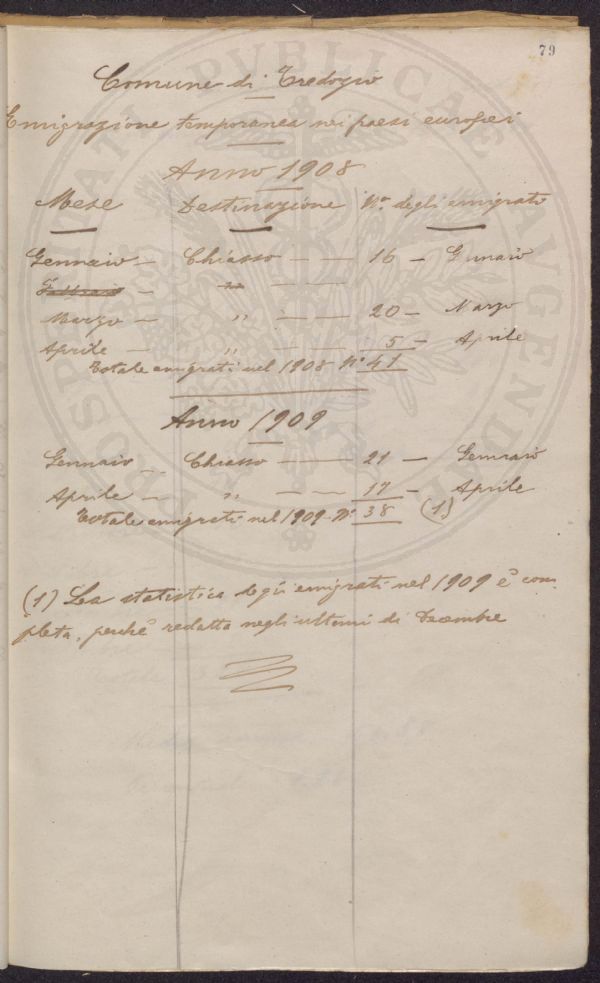 79
Comune di Tredozio
Emigrazione temporanea nei paesi europei
Anno 1908
Mese Destinazione N.º degli emigrato
Gennaio — Chiasso — — 16 — Gennaio
Febbraio — " — —
Marzo — " — — 20 — Marzo
Aprile — " — — 5 — Aprile
Totale emigrati nel 1908 Nº 41
Anno 1909
Gennaio — Chiasso — — 21 — Gennaio
Aprile — " — — 17 — Aprile
Totale emigrati nel 1909 Nº 38 (1)
(1) La statistica degli emigrati nel 1909 è com-
pleta, perchè redatta negli ultimi di Decembre
PROSPERITATI PVBLICAE AVGENDAE